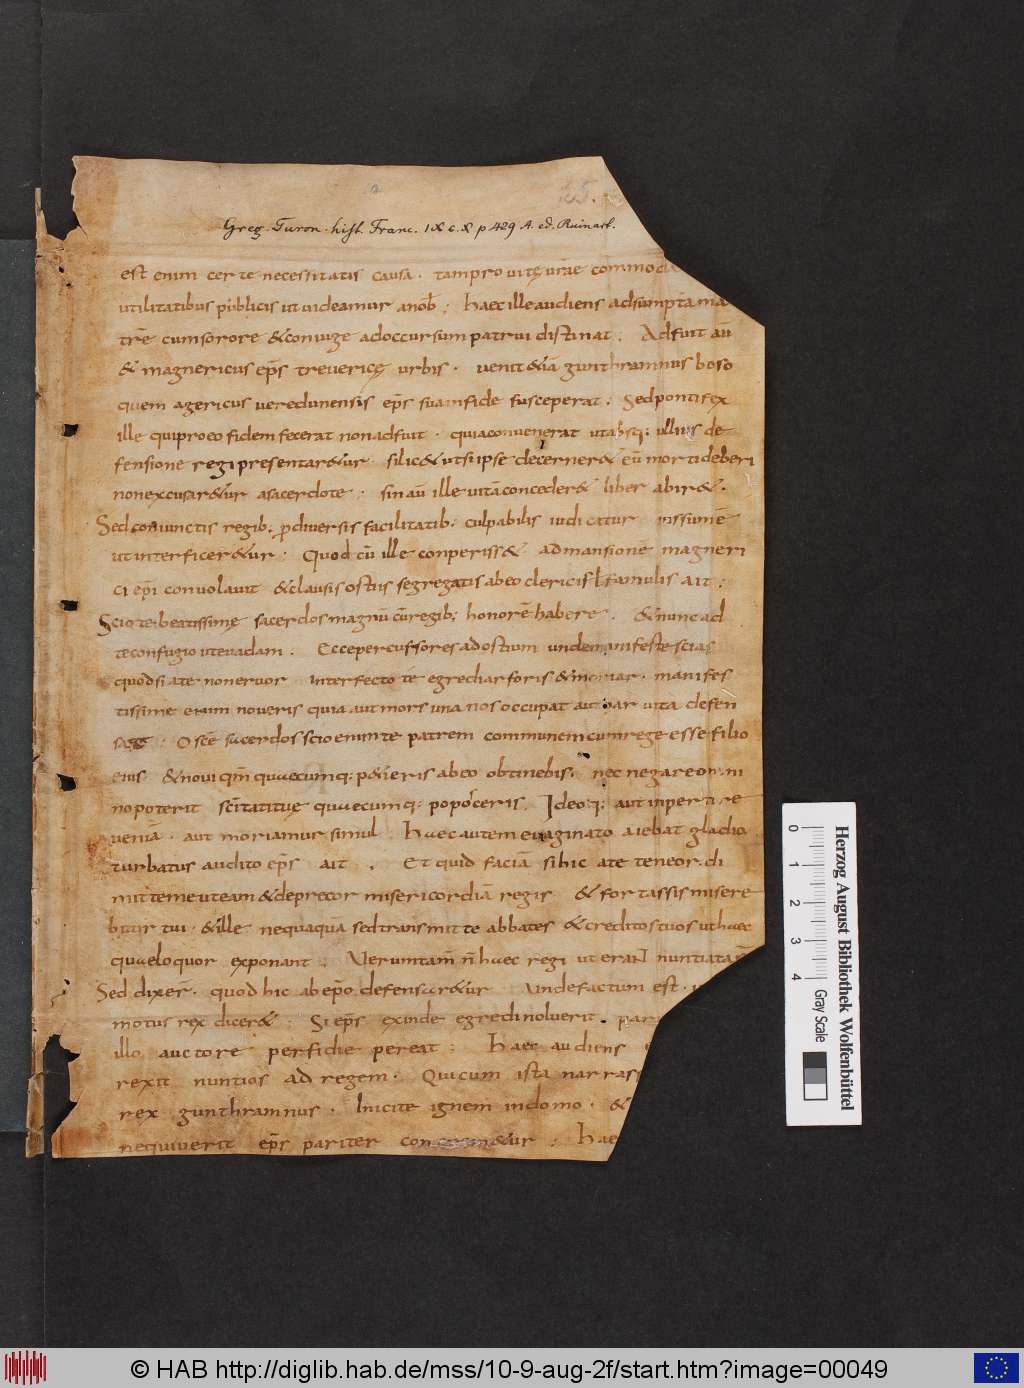 25.
Greg. Turon. hist. Franc. IX c. X p 429 A. ed. Ruinart.
est enim certe necessitatis causa. tam pro uitę ur̄ae commod
utilitatibus publicis ut uideamur a nob̄. Haec ille audiens adsumpta ma
tr̄e cum sorore & coniuge ad occursum patrui distinat. Adfuit au͞
& magnericus ep̄s treuericę urbis. uenit & iā gunthramnus boso
quem agericus ueredunensis ep̄s sua in fide susceperat. Sed pontifex
ille qui pro eo fidem fecerat non adfuit. quia conuenerat ut absq; ullius de
fensione regi presentar&ur. si lic& ut si ipse decerner& eu͞ morti deberi
non excusar&ur a sacerdote. sin au͞ ille uitā conceder& liber abir&.
Sed coniunctis regib; p̱ diuersis facilitatib; culpabilis iudicatur iussum ē
ut interficer&ur. Quod cū ille conperiss& ad mansionē magneri
ci ep̄i conuolauit & clausis ostiis segregatis ab eo clericis famulis ait.
Scio te beatissime sacerdos magnū cū regib; honorē habere. & nunc ad
te confugio ut euadam. Ecce percussores ad ostium unde manifeste scias
quod si a te non eruor interfecto te egrediar foris & moriar. manifes
tissime enim noueris quia aut mors una nos occupat aut par uita defen
O sc̄e sacerdos scio enim te patrem communem cum rege esse filio
eius & noui qm̄ quaecumq; p&ieris ab eo obtinebis. nec negare omni
no poterit sc̄itati tuę quaecumq; poposceris. Ideoq; aut inperti re
ueniā. aut moriamur simul. Haec autem euaginato aiebat gladio
turbatus audito ep̄s ait. Et quid faciā si hic a te teneor. di
mitte me ut eam & deprecor misericordiā regis & fortassis misere
bitur tui. & ille nequaquā sed transmitte abbates & creditos tuos ut haec
quae loquor exponant. Uerumtam̄ n̄ haec regi ut erant nuntiata s̄
Sed dixer. quod hic ab ep̄o defensar&ur Unde factum est.
motus rex dicer& Si ep̄s exinde egredi noluerit. par
illo auctore perfidie pereat. Haec audiens
rexit nuntios ad regem. Qui cum ista narrass
rex gunthramnus. Inicite ignem in domo. &
nequiuerit ep̄s pariter concrem&ur. Hae
Herzog August Bibliothek Wolfenbüttel
0 1 2 3 4 Gray Scale
© HAB http://diglib.hab.de/mss/10-9-aug-2f/start.htm?image=00049